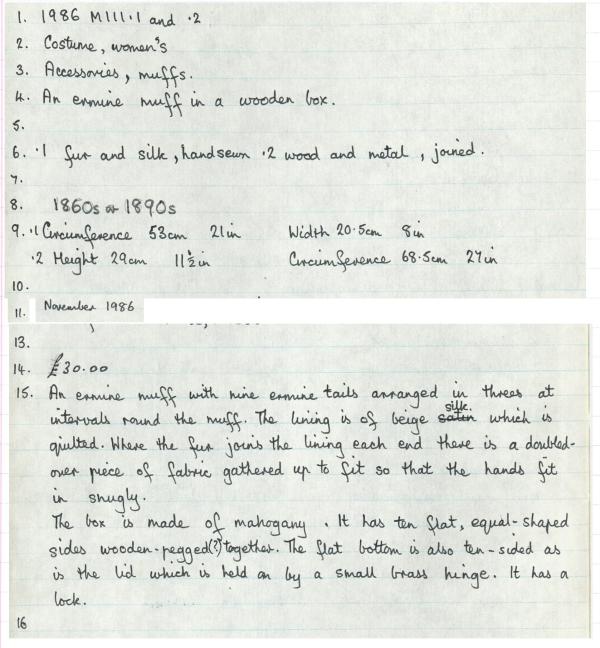 1. 1986 M111.1 and .2
2. Costume, women's
3. Accessories, muffs.
4. An ermine muff in a wooden box.
5.
6. .1 fur and silk, handsewn .2 wood and metal, joined.
7.
8. 1860s or 1890s
9. .1 Circumference 53cm 21in Width 20.5cm 8in
.2 Height 29cm 11½in Circumference 68.5cm 27in
10.
11. November 1986
13.
14. £30.00
15. An ermine muff with nine ermine tails arranged in threes at
intervals round the muff. The lining is of beige satin silk. which is
quilted. Where the fur joins the lining each end there is a doubled-
over piece of fabric gathered up to fit so that the hands fit
in snugly.
The box is made of mahogany. It has ten flat, equal-shaped
sides wooden-pegged(?) together. The flat bottom is also ten-sided as
is the lid which is held on by a small brass hinge. It has a
lock.
16